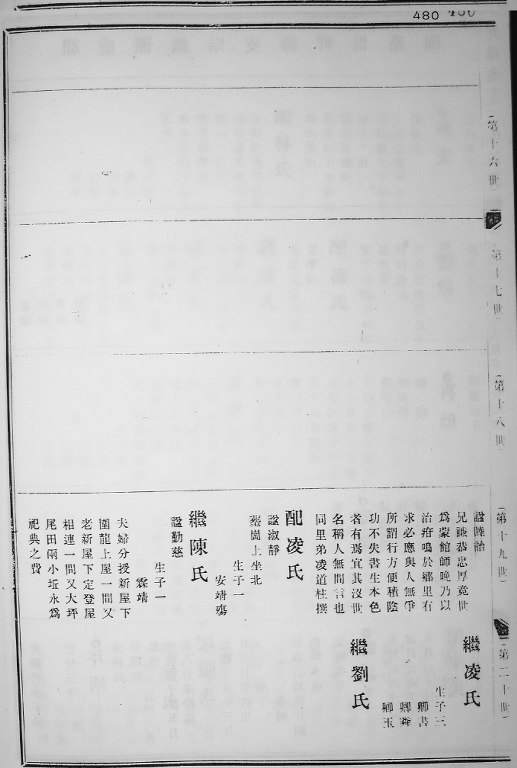 480
第十六世
第十七世
第十八世
第十九世
諡謙諂
兄謙恭忠厚竟世
爲蒙館師晩乃以
治疳鳴於鄉里有
求必應與人無爭
所謂行方便積陰
功不失書生本色
者有焉宜其沒世
名稱人無間言也
同里弟凌道桂撰
配凌氏
諡淑靜
葬崗上坐北
生子一
安靖殤
繼陳氏
諡勤慈
生子一
霖靖
夫婦分授新屋下
圍龍上屋一間又
老新屋下定登屋
相連一間又大坪
尾田兩小坵永爲
祀典之費
第二十世
繼凌氏
生子三
卿書
卿舞
卿玉
繼劉氏